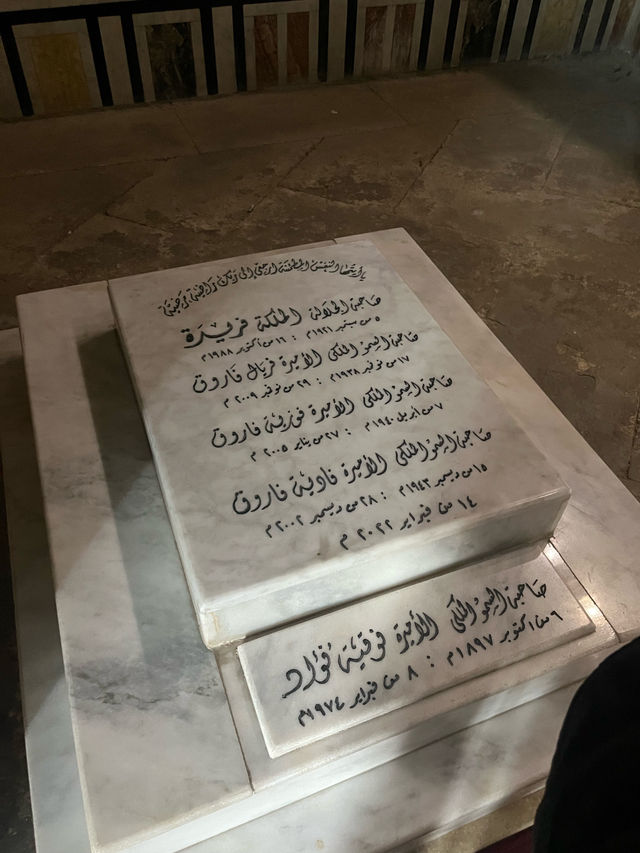 يا أيتها النفس المطمئنة ارجعي إلى ربك راضية مرضية
صاحبة الجلالة الملكة فريدة
٥ من سبتمبر ١٩٢١ م : ١٦ من أكتوبر ١٩٨٨ م
صاحبة السمو الملكي الأميرة فريال فاروق
١٧ من نوفمبر ١٩٣٨ م : ٢٩ من نوفمبر ٢٠٠٩ م
صاحبة السمو الملكي الأميرة فوزية فاروق
٧ من ابريل ١٩٤٠ م : ٢٧ من يناير ٢٠٠٥ م
صاحبة السمو الملكي الأميرة فادية فاروق
١٥ من ديسمبر ١٩٤٣ م : ٢٨ من ديسمبر ٢٠٠٢ م
١٤ من فبراير ٢٠٢٢ م
صاحبة السمو الملكي الأميرة فوقية فؤاد
٦ من اكتوبر ١٨٩٧ م : ٨ من فبراير ١٩٧٤ م